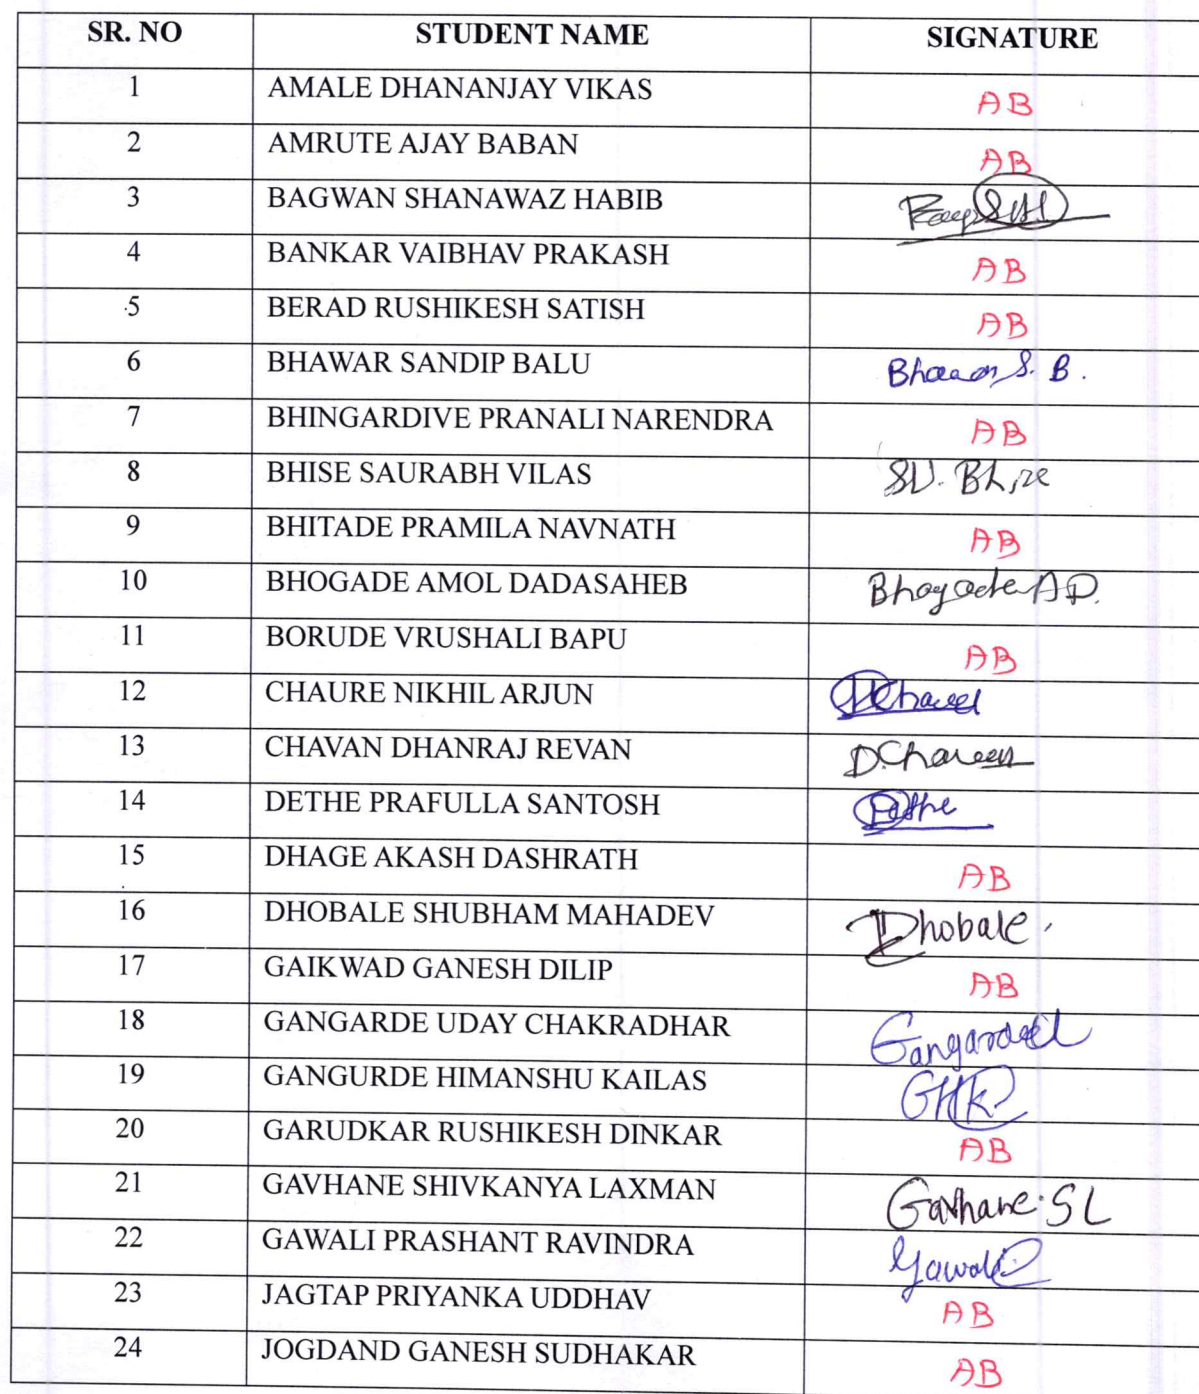 SR. NO STUDENT NAME SIGNATURE
1 AMALE DHANANJAY VIKAS AB
2 AMRUTE AJAY BABAN AB
3 BAGWAN SHANAWAZ HABIB
4 BANKAR VAIBHAV PRAKASH AB
5 BERAD RUSHIKESH SATISH AB
6 BHAWAR SANDIP BALU S. B.
7 BHINGARDIVE PRANALI NARENDRA AB
8 BHISE SAURABH VILAS SV. Bhise
9 BHITADE PRAMILA NAVNATH AB
10 BHOGADE AMOL DADASAHEB Bhogade A D.
11 BORUDE VRUSHALI BAPU AB
12 CHAURE NIKHIL ARJUN
13 CHAVAN DHANRAJ REVAN D.Chavan
14 DETHE PRAFULLA SANTOSH
15 DHAGE AKASH DASHRATH AB
16 DHOBALE SHUBHAM MAHADEV Dhobale
17 GAIKWAD GANESH DILIP AB
18 GANGARDE UDAY CHAKRADHAR
19 GANGURDE HIMANSHU KAILAS GHK
20 GARUDKAR RUSHIKESH DINKAR AB
21 GAVHANE SHIVKANYA LAXMAN Gavhane SL
22 GAWALI PRASHANT RAVINDRA Gawali
23 JAGTAP PRIYANKA UDDHAV AB
24 JOGDAND GANESH SUDHAKAR AB